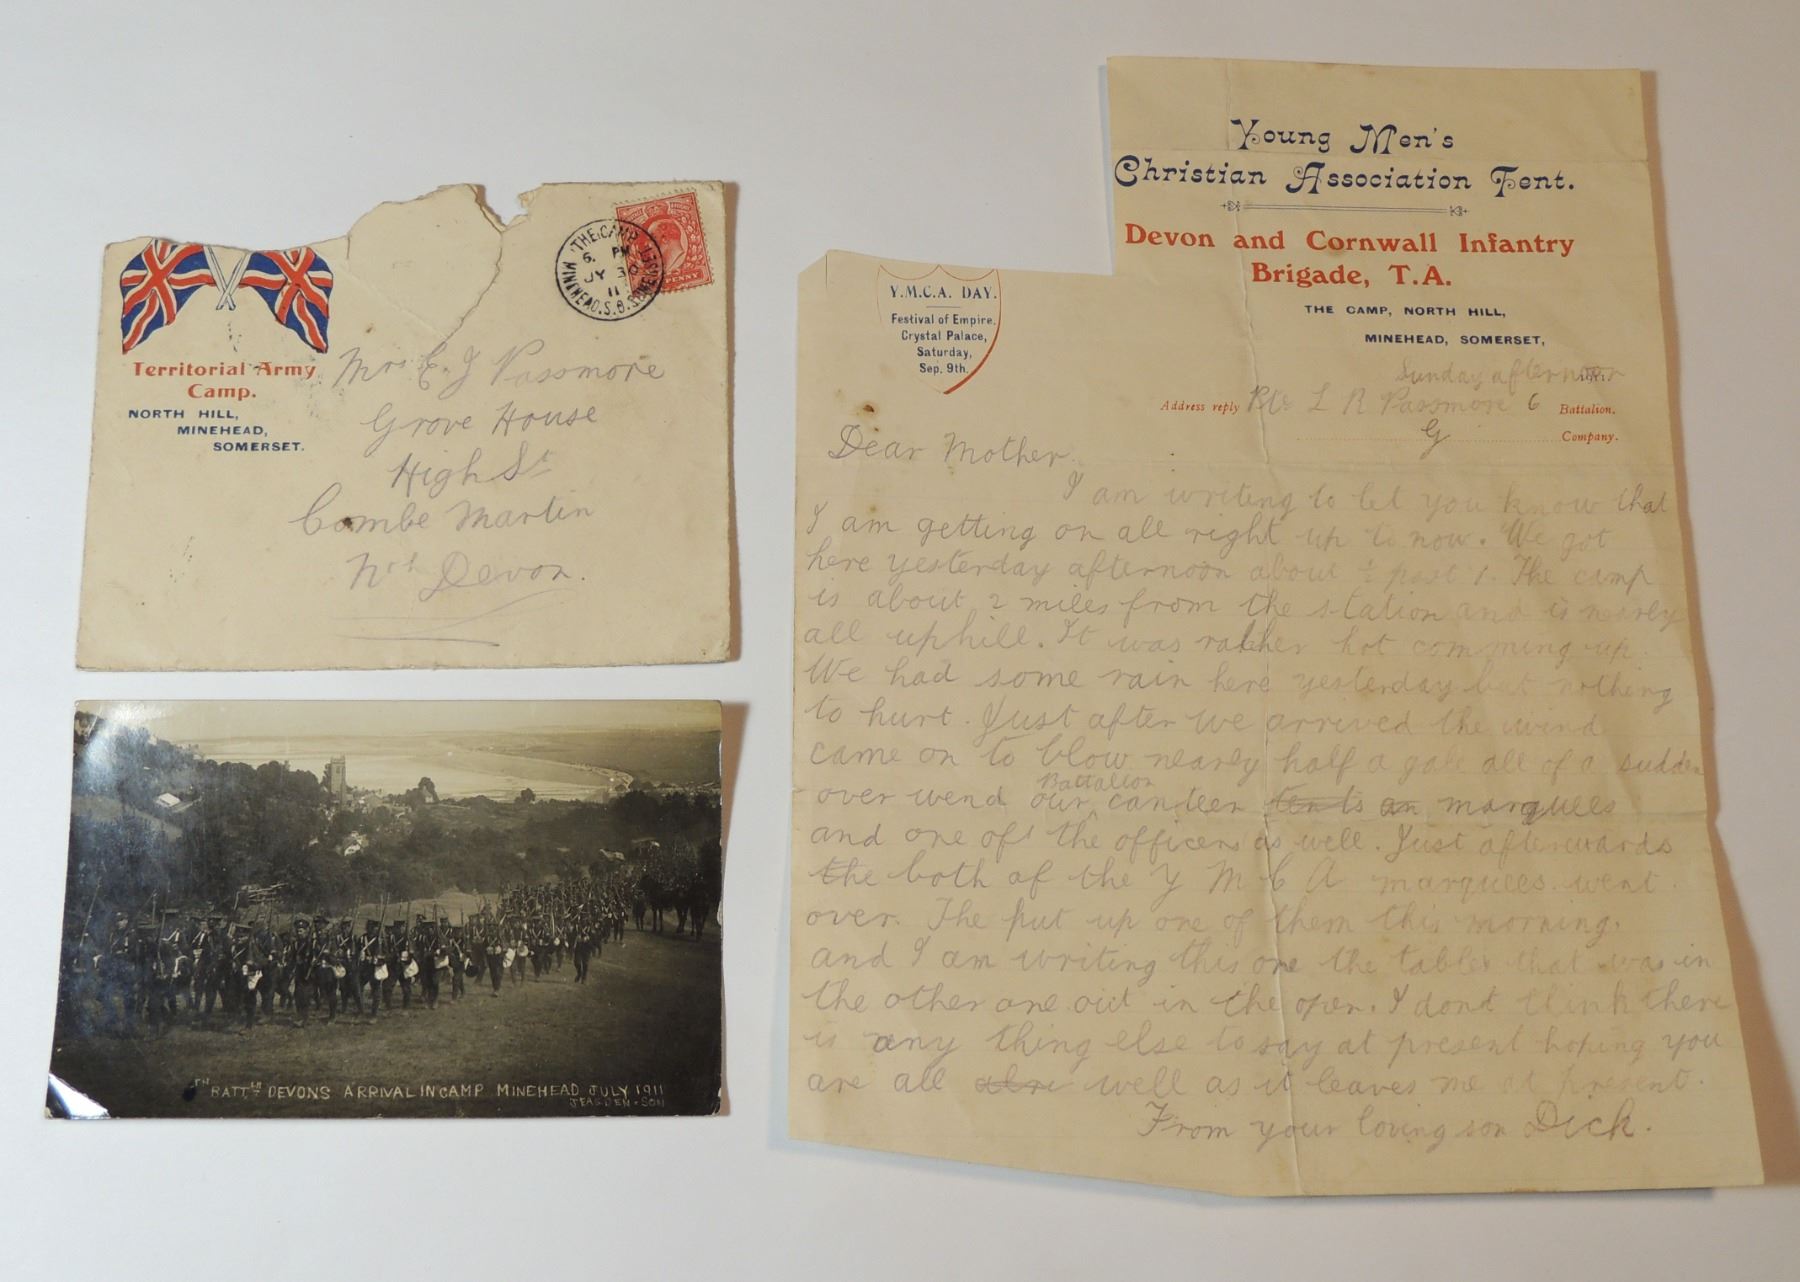 Territorial Army
Camp.
NORTH HILL,
MINEHEAD,
SOMERSET.
THE CAMP
6. PM
JY 30
11
MINEHEAD.S.O. SOMERSET
PENNY
Mrs E. J Passmore
Grove House
High St
Combe Martin
Nth Devon.
BATTLN DEVONS ARRIVAL IN CAMP MINEHEAD JULY 1911
Young Men's
Christian Association Tent.
Devon and Cornwall Infantry
Brigade, T.A.
THE CAMP, NORTH HILL,
MINEHEAD, SOMERSET,
Y.M.C.A. DAY.
Festival of Empire,
Crystal Palace,
Saturday,
Sep. 9th.
Sunday afternoon 1911
Address reply Pte L R Passmore 6 Battalion.
G Company.
Dear Mother.
I am writing to let you know that
I am getting on all right up to now. We got
here yesterday afternoon about ½ past 1. The camp
is about 2 miles from the station and is nearly
all uphill. It was rather hot comming up.
We had some rain here yesterday but nothing
to hurt. Just after we arrived the wind
came on to blow nearly half a gale all of a sudden
over wend our Battalion canteen tents an marquees
and one of the officers as well. Just afterwards
the both of the Y M C A marquees went
over. The put up one of them this morning.
and I am writing this one the tables that was in
the other one out in the open. I dont think there
is any thing else to say at present hoping you
are all well as it leaves me at present.
From your loving son Dick.